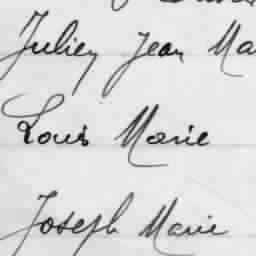 Julien Jean Ma
Louis Marie
Joseph Marie